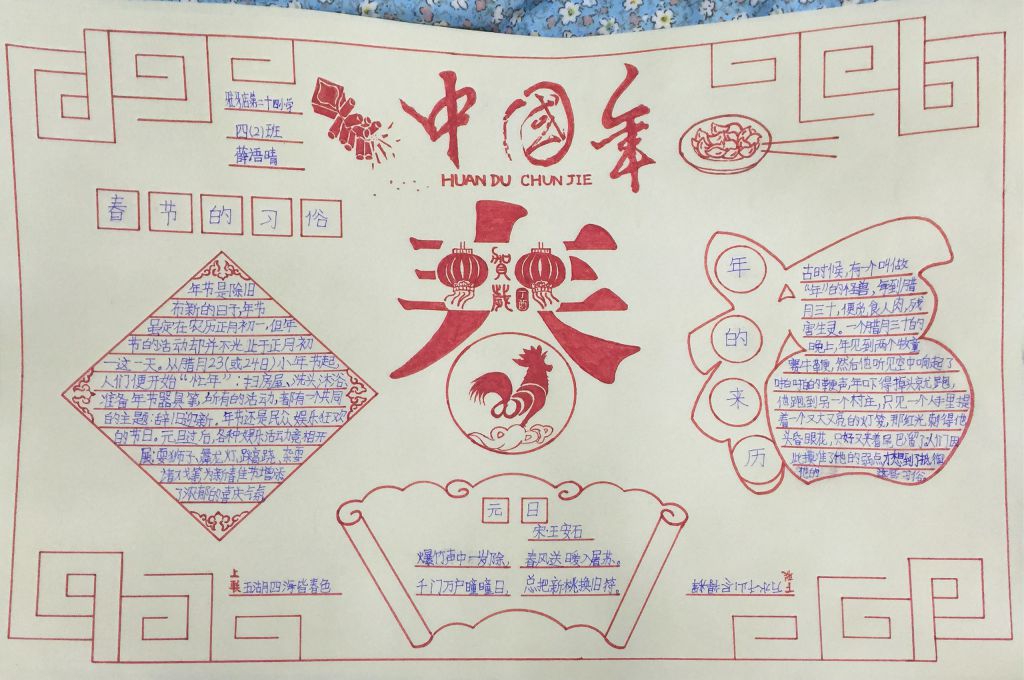 驻马店第二十四小学
四(2)班
薛语晴
中国年
HUAN DU CHUN JIE
春节的习俗
年节是除旧
布新的日子,年节
虽定在农历正月初一,但年
节的活动却并不光止于正月初
一这一天。从腊月23(或24日)小年节起,
人们便开始“忙年”:扫房屋、洗头沐浴、
准备年节器具等,所有的活动,都有一个共同
的主题:辞旧迎新。年节还是民众娱乐狂欢
的节日。元旦过后,各种娱乐活动竞相开
展:耍狮子、舞龙灯、踩高跷、杂耍
诸戏等为新春佳节增添
了浓郁的喜庆气氛
賀歲
丁酉
年的来历
古时候,有一个叫做
“年”的怪兽,每到腊
月三十,便
食人肉,残
害生灵。一个腊月三十的
晚上,年见到两个牧童
然后他听见空中响起了
啪啪的鞭声,年吓得掉头就跑,
他跑到另一个村庄,只见一个人手里提
着一个又大又亮的灯笼,那红光刺得他
头昏眼花,只好又夹着尾巴溜了。人们因
此摸准了他的弱点,才想到了抵御
他的
这些习俗。
元日
宋:王安石
爆竹声中一岁除,春风送暖入屠苏。
千门万户曈曈日,总把新桃换旧符。
上联
五湖四海皆春色
下联
万水千山尽